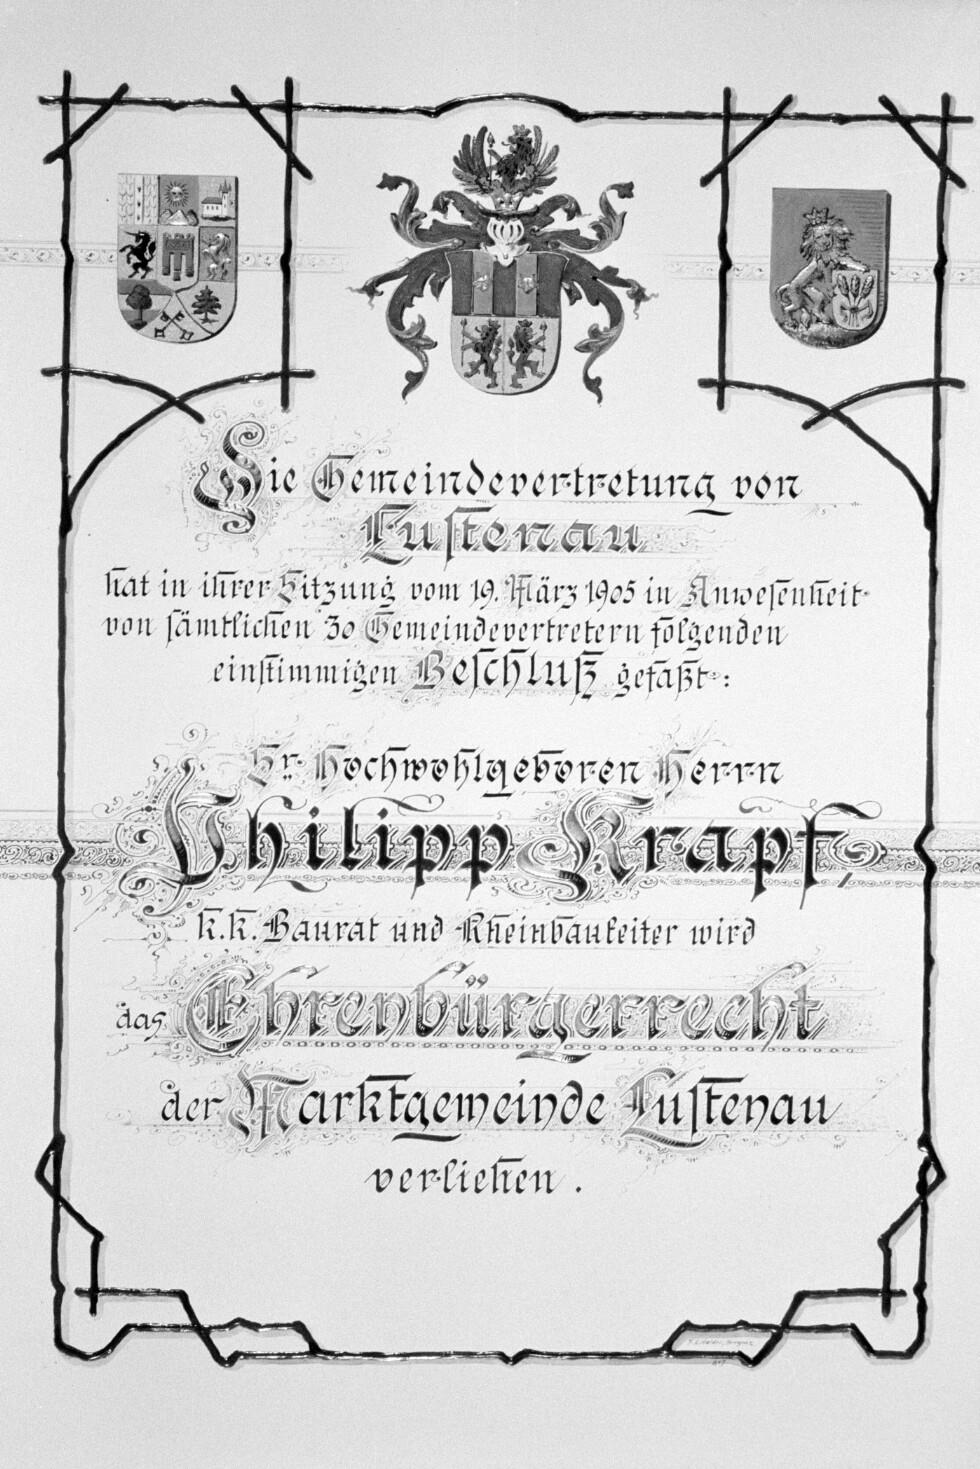 Die Gemeindevertretung von
Lustenau
hat in ihrer Sitzung vom 19. März 1905 in Anwesenheit
von sämtlichen 30 Gemeindevertretern folgenden
einstimmigen Beschluß gefaßt:
Sr. Hochwohlgeboren Herrn
Philipp Krapf,
k.k. Baurat und Rheinbauleiter wird
das Ehrenbürgerrecht
der Marktgemeinde Lustenau
verliehen.